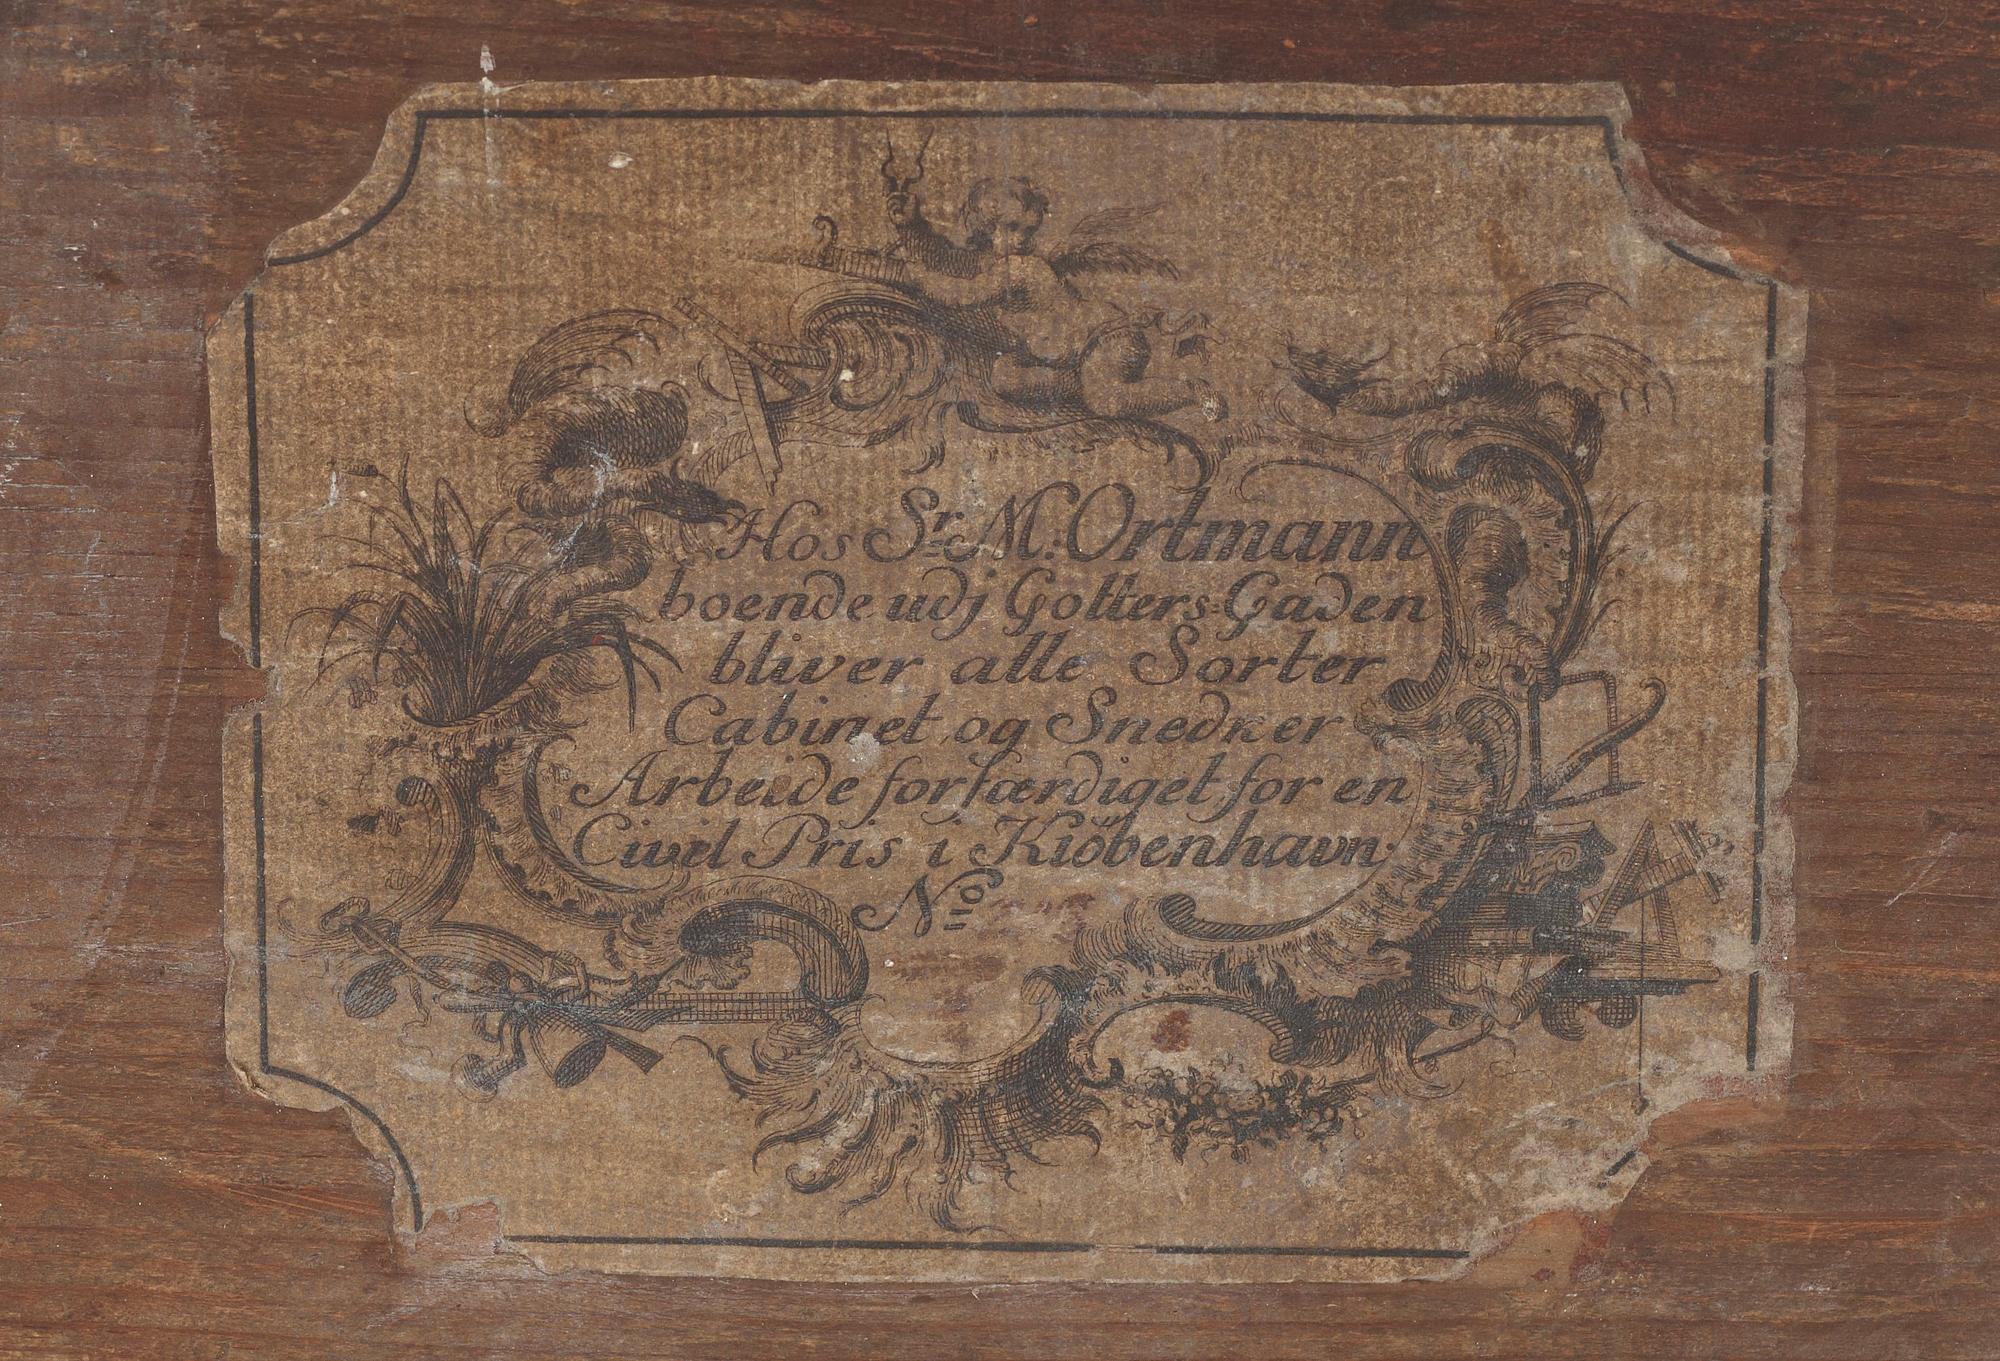 Hos Sr. M: Ortmann
boende udj Gotters-Gaden
bliver alle Sorter
Cabinet og Snedker
Arbeide forfærdiget for en
Civel Pris i Kiöbenhavn.
No